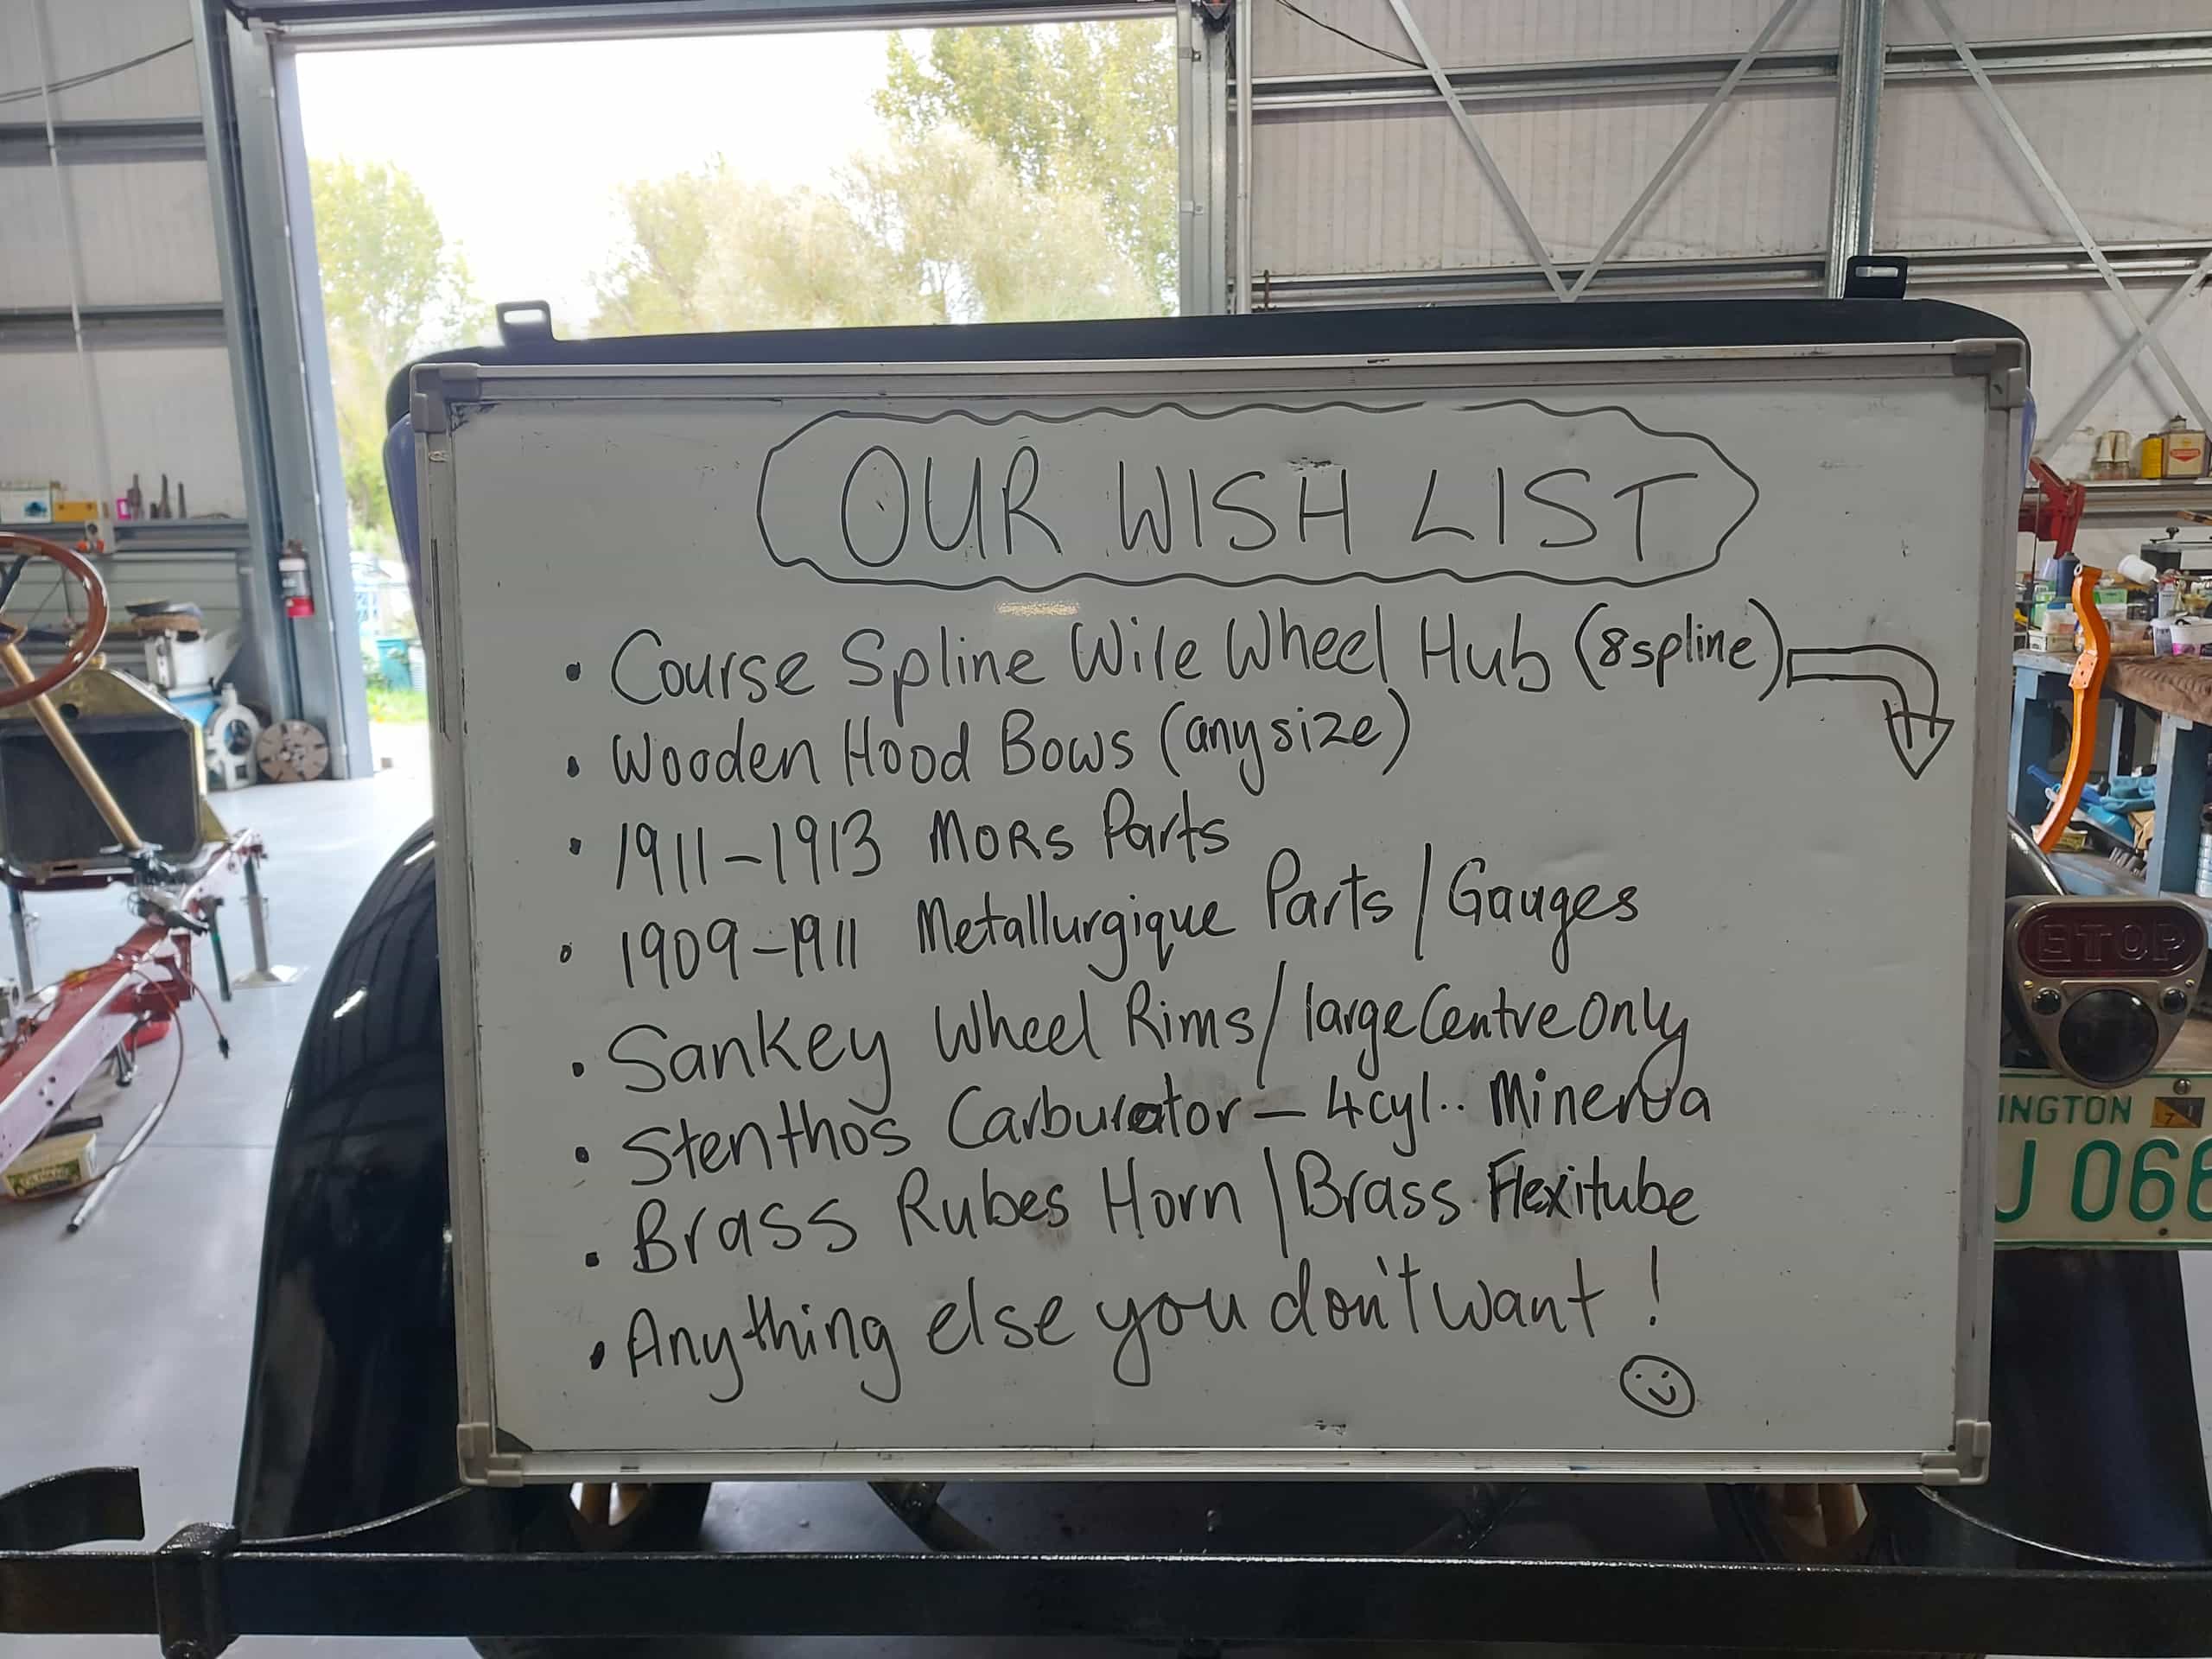 OUR WISH LIST
• Course Spline Wire Wheel Hub (8 spline)
• Wooden Hood Bows (any size)
• 1911-1913 MORS Parts
• 1909-1911 Metallurgique Parts / Gauges
• Sankey Wheel Rims / large Centre Only
• Stenthos Carburator - 4cyl.. Minerva
• Brass Rubes Horn / Brass Flexitube
• Anything else you don't want !
STOP
INGTON
J 066